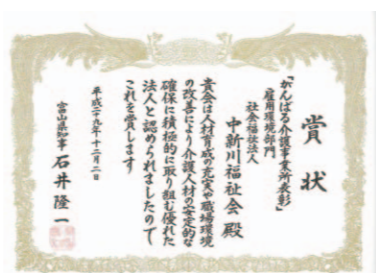 賞状
「がんばる介護事業所表彰」
雇用環境部門
社会福祉法人
中新川福祉会 殿
貴会は人材育成の充実や職場環境
の改善により介護人材の安定的な
確保に積極的に取り組む優れた
法人と認められましたので
これを賞します
平成二十九年十二月二日
富山県知事 石井隆一